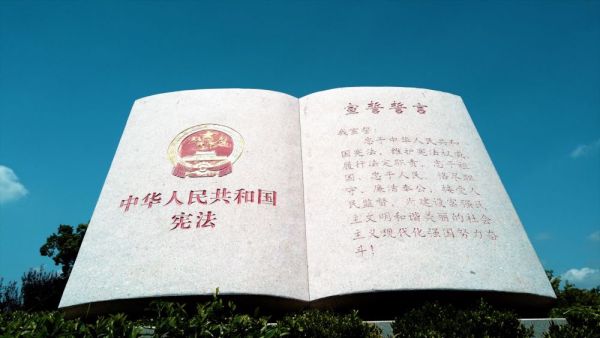 中华人民共和国
宪法
宣誓誓言
我宣誓：
忠于中华人民共和
国宪法，维护宪法权威，
履行法定职责，忠于祖
国、忠于人民，恪尽职
守、廉洁奉公，接受人
民监督，为建设富强民
主文明和谐美丽的社会
主义现代化强国努力奋
斗！